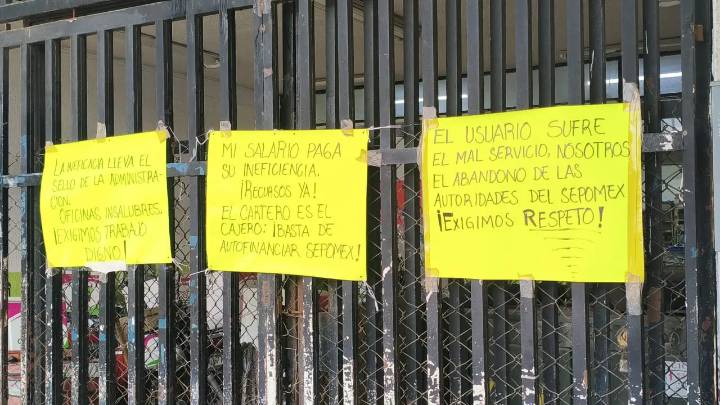 LA INEFICACIA LLEVA EL
SELLO DE LA ADMINISTRA-
CIÓN.
OFICINAS INSALUBRES.
¡EXIGIMOS TRABAJO
DIGNO!
MI SALARIO PAGA
SU INEFICIENCIA.
¡RECURSOS YA!
EL CARTERO ES EL
CAJERO: ¡BASTA DE
AUTOFINANCIAR SEPOMEX!
EL USUARIO SUFRE
EL MAL SERVICIO, NOSOTROS
EL ABANDONO DE LAS
AUTORIDADES DEL SEPOMEX
¡EXIGIMOS RESPETO!